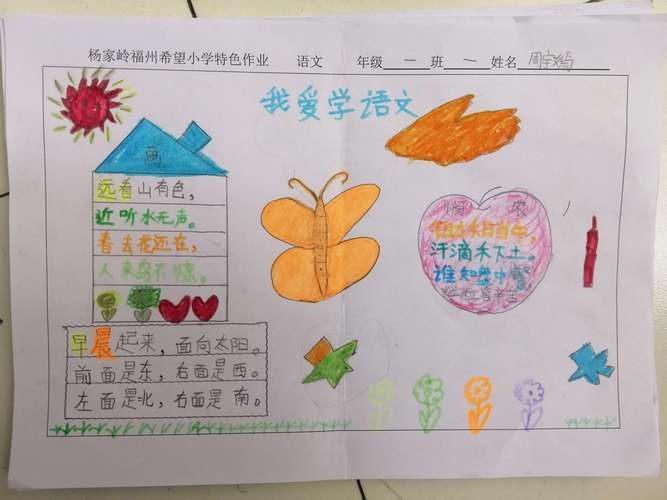 杨家岭福州希望小学特色作业 语文 年级 一 班 一 姓名 周宇
我爱学语文
画
远看山有色，
近听水无声。
春去花还在，
人来鸟不惊。
悯 农
锄禾日当午，
汗滴禾下土。
谁知盘中餐，
粒粒皆辛苦
早晨起来，面向太阳。
前面是东，右面是西。
左面是北，右面是南。